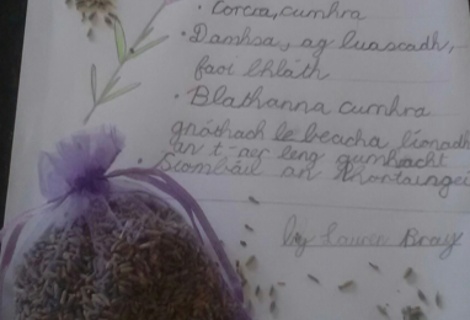 • Corcra, cumhra
• Damhsa, ag luascadh,
faoi bhláth
• Blathanna cumhra
gnáthach le beacha, líonadh
an t-aer leng cumhracht
• Siombáil an
by Lauren Bray